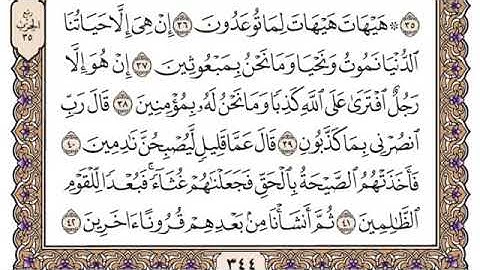 ربع
الحزب
٣٥
٣٥ * هَيْهَاتَ هَيْهَاتَ لِمَا تُوعَدُونَ ٣٦ إِنْ هِىَ إِلَّا حَيَاتُنَا
ٱلدُّنْيَا نَمُوتُ وَنَحْيَا وَمَا نَحْنُ بِمَبْعُوثِينَ ٣٧ إِنْ هُوَ إِلَّا
رَجُلٌ ٱفْتَرَىٰ عَلَى ٱللَّهِ كَذِبًا وَمَا نَحْنُ لَهُۥ بِمُؤْمِنِينَ ٣٨ قَالَ رَبِّ
ٱنصُرْنِى بِمَا كَذَّبُونِ ٣٩ قَالَ عَمَّا قَلِيلٍ لَّيُصْبِحُنَّ نَٰدِمِينَ ٤٠
فَأَخَذَتْهُمُ ٱلصَّيْحَةُ بِٱلْحَقِّ فَجَعَلْنَٰهُمْ غُثَآءً ۚ فَبُعْدًا لِّلْقَوْمِ
ٱلظَّٰلِمِينَ ٤١ ثُمَّ أَنشَأْنَا مِنۢ بَعْدِهِمْ قُرُونًا ءَاخَرِينَ ٤٢
٣٤٤